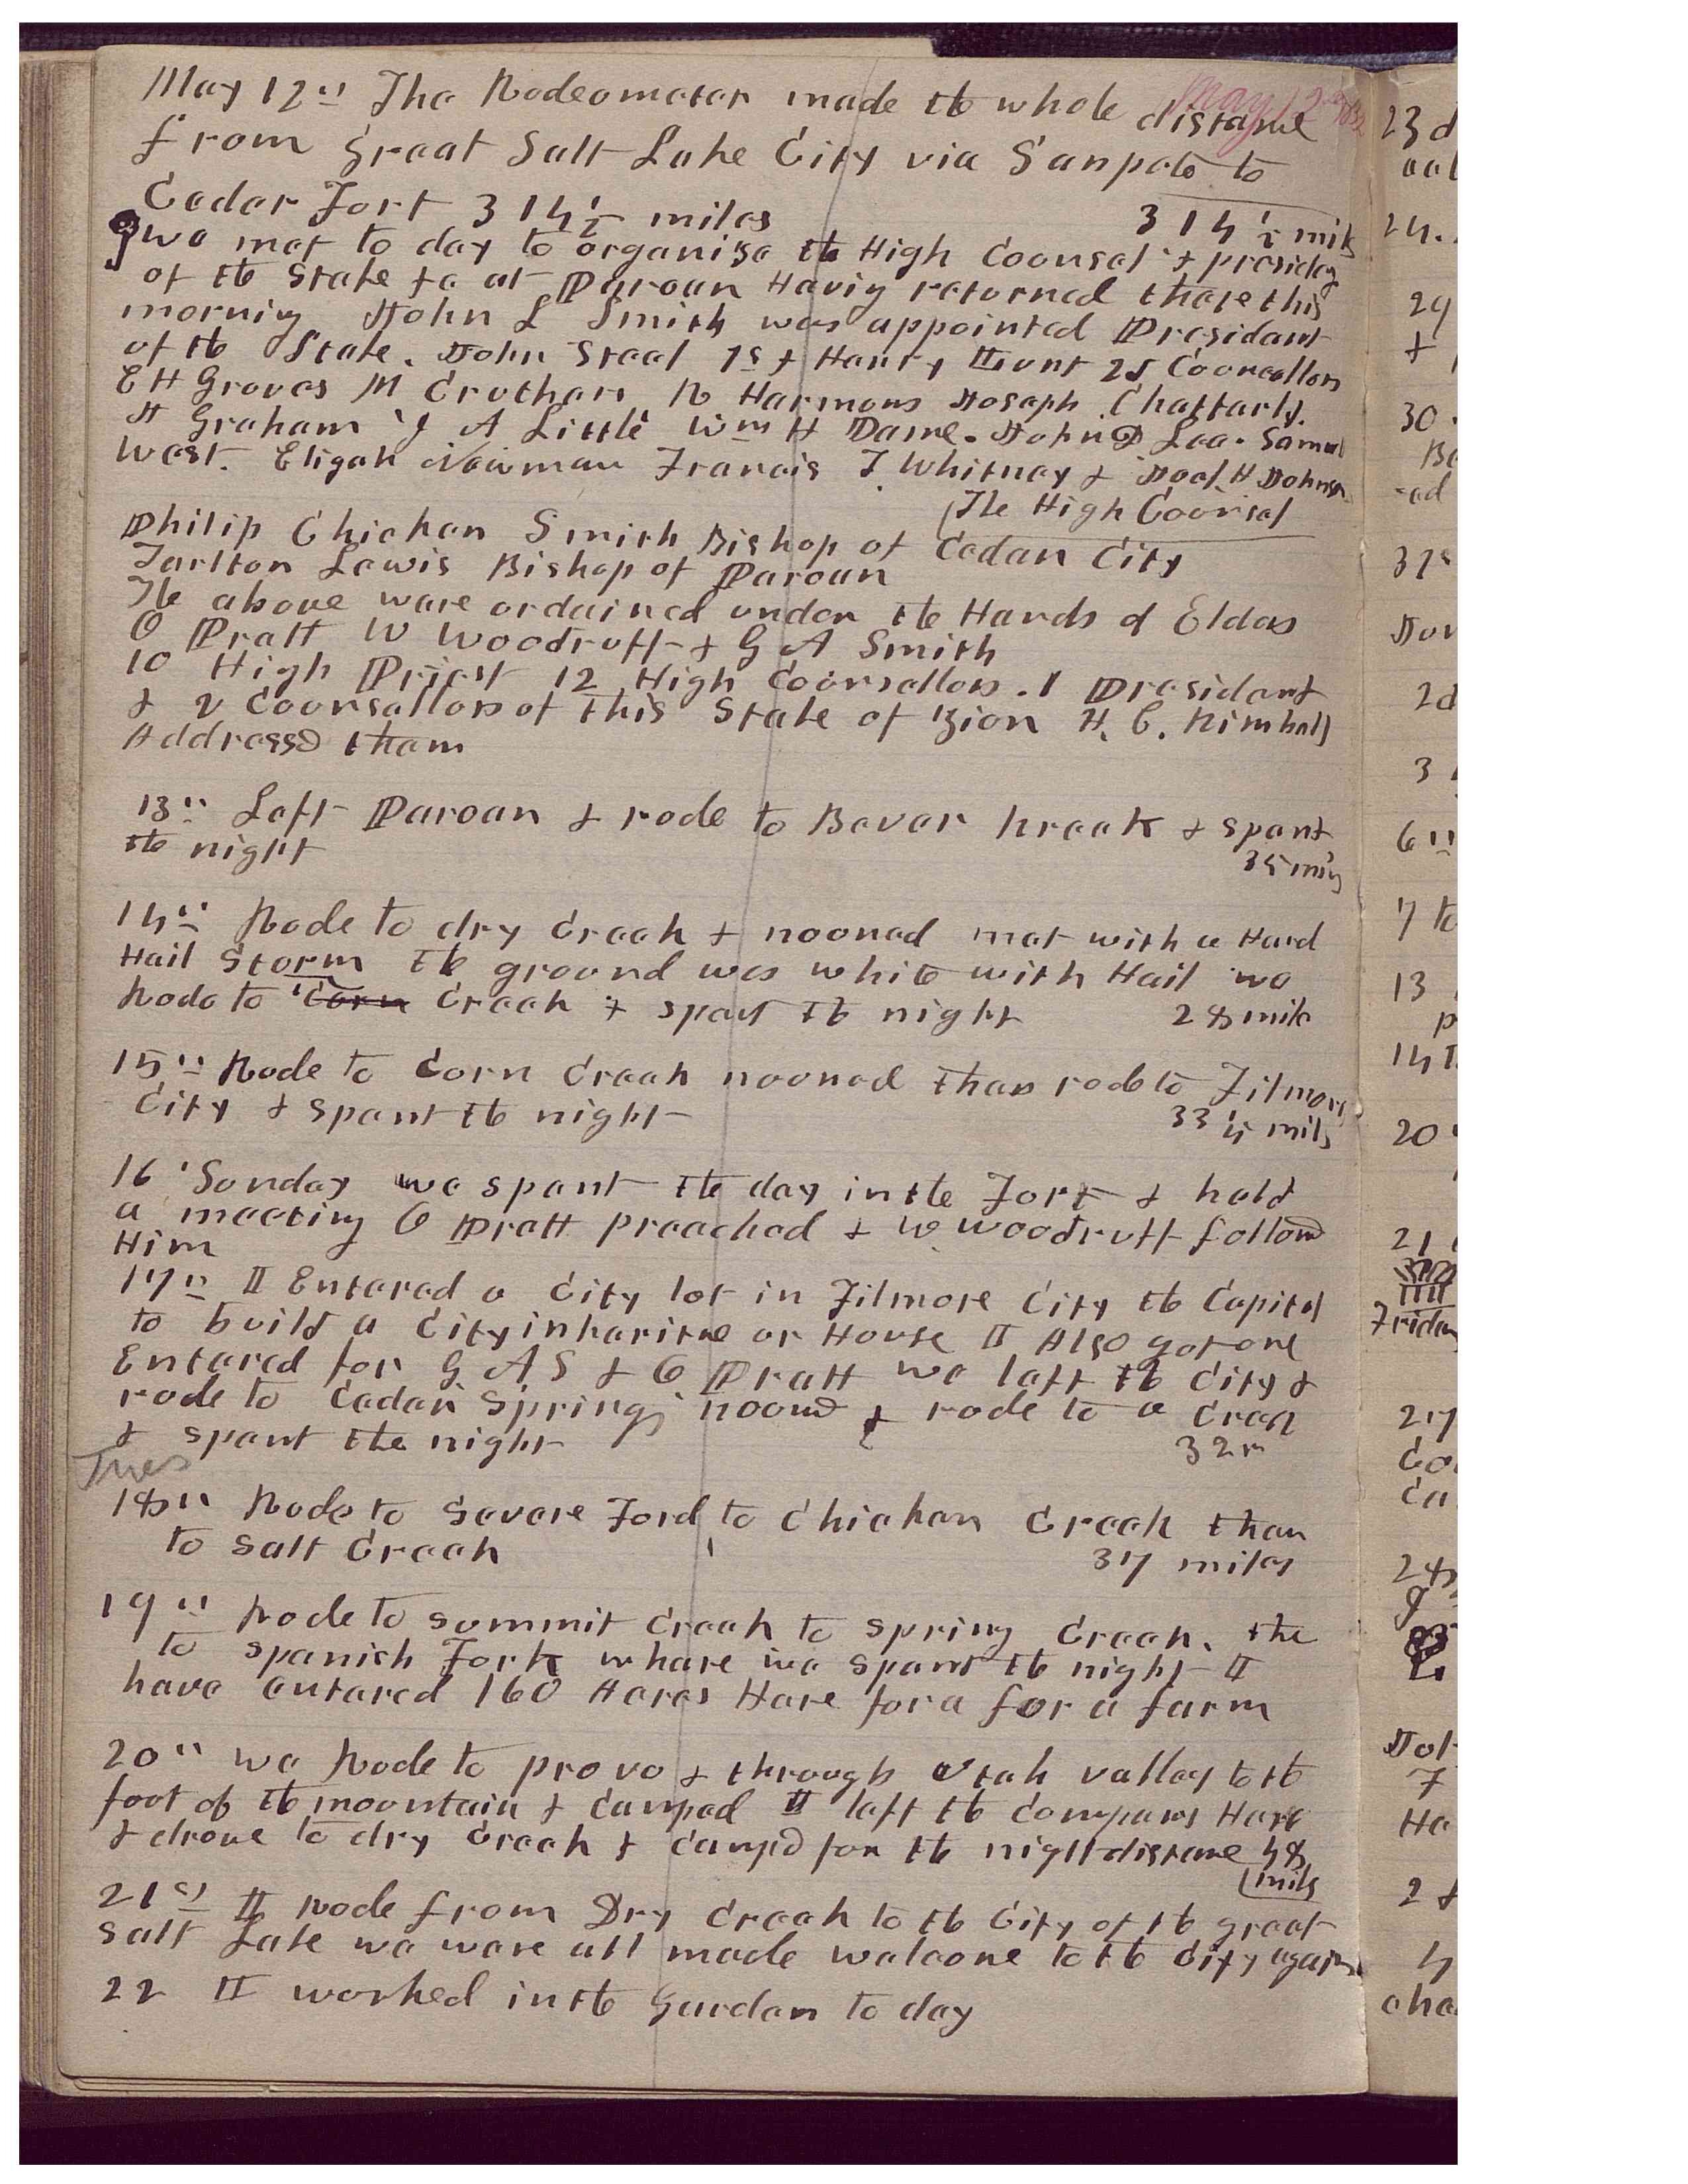 May 12th The Rodeometer made the whole distance
May 12
from Great Salt Lake City via Sanpete to
Cedar Fort 314½ miles
314½ mils
we met to day to organize the High Counsel & presidey
of the Stake &c at Paroan Having returned there this
morning John L Smith was appointed President
of the Stake. John Steel 1st & Henry Lunt 2d Councellors
E H Groves M Cruthers R Harmons Joseph Chatterly.
J Graham J A Little Wm H Dame. John D Lee. Samuel
West. Elijah Newman Francis T Whitney & Joel H Johnson
The High Counsel
Philip Chicken Smith Bishop of Cedar City
Tarlton Lewis Bishop of Paroan
The above ware ordained under the Hands of Elders
O Pratt W Woodruff & G A Smith
10 High Priest 12 High Counsellors. 1 President
& 2 Counsellors of this Stake of Zion H. C. Kimball
Addressd them
13th Left Paroan & rode to Bever kreek & spent
the night
35 mils
14th Rode to dry Creek & nooned met with a Hard
Hail Storm the ground was white with Hail we
Rode to Corn Creek & spent the night 28 mile
15th Rode to Corn Creek nooned then rode to Filmore
City & spent the night
33¼ mils
16 Sunday we spent the day in the Fort & held
a meeting O Pratt preached & W Woodruff followd
Him
17th I Entered a City lot in Filmore City the Capitol
to build a City inharitne or House I Also got one
Entered for G A S & O Pratt we left the City &
rode to Cedar Springs noond & rode to a Creek
& spent the night
32 m
Tues
18th Rode to Severe Ford to Chicken Creek then
to Salt Creek 37 miles
19th Rode to summit Creek to Spring Creek. the
to Spanish Fork whare we spent the night I
have entered 160 Acres Here for a for a farm
20th we Rode to provo & through Utah valley to the
foot of the mountain & camped I left the company Here
& drove to dry Creek & campd for the night distance 48
mils
21st I Rode from Dry Creek to the City of the great
Salt Lake we ware all made welcome to the City again
22 I worked in the Garden to day
23d
24.
29
&
30
31s
2d
3
6th
7 to
13
14 t
20
21
Friday
27
28
2d
4